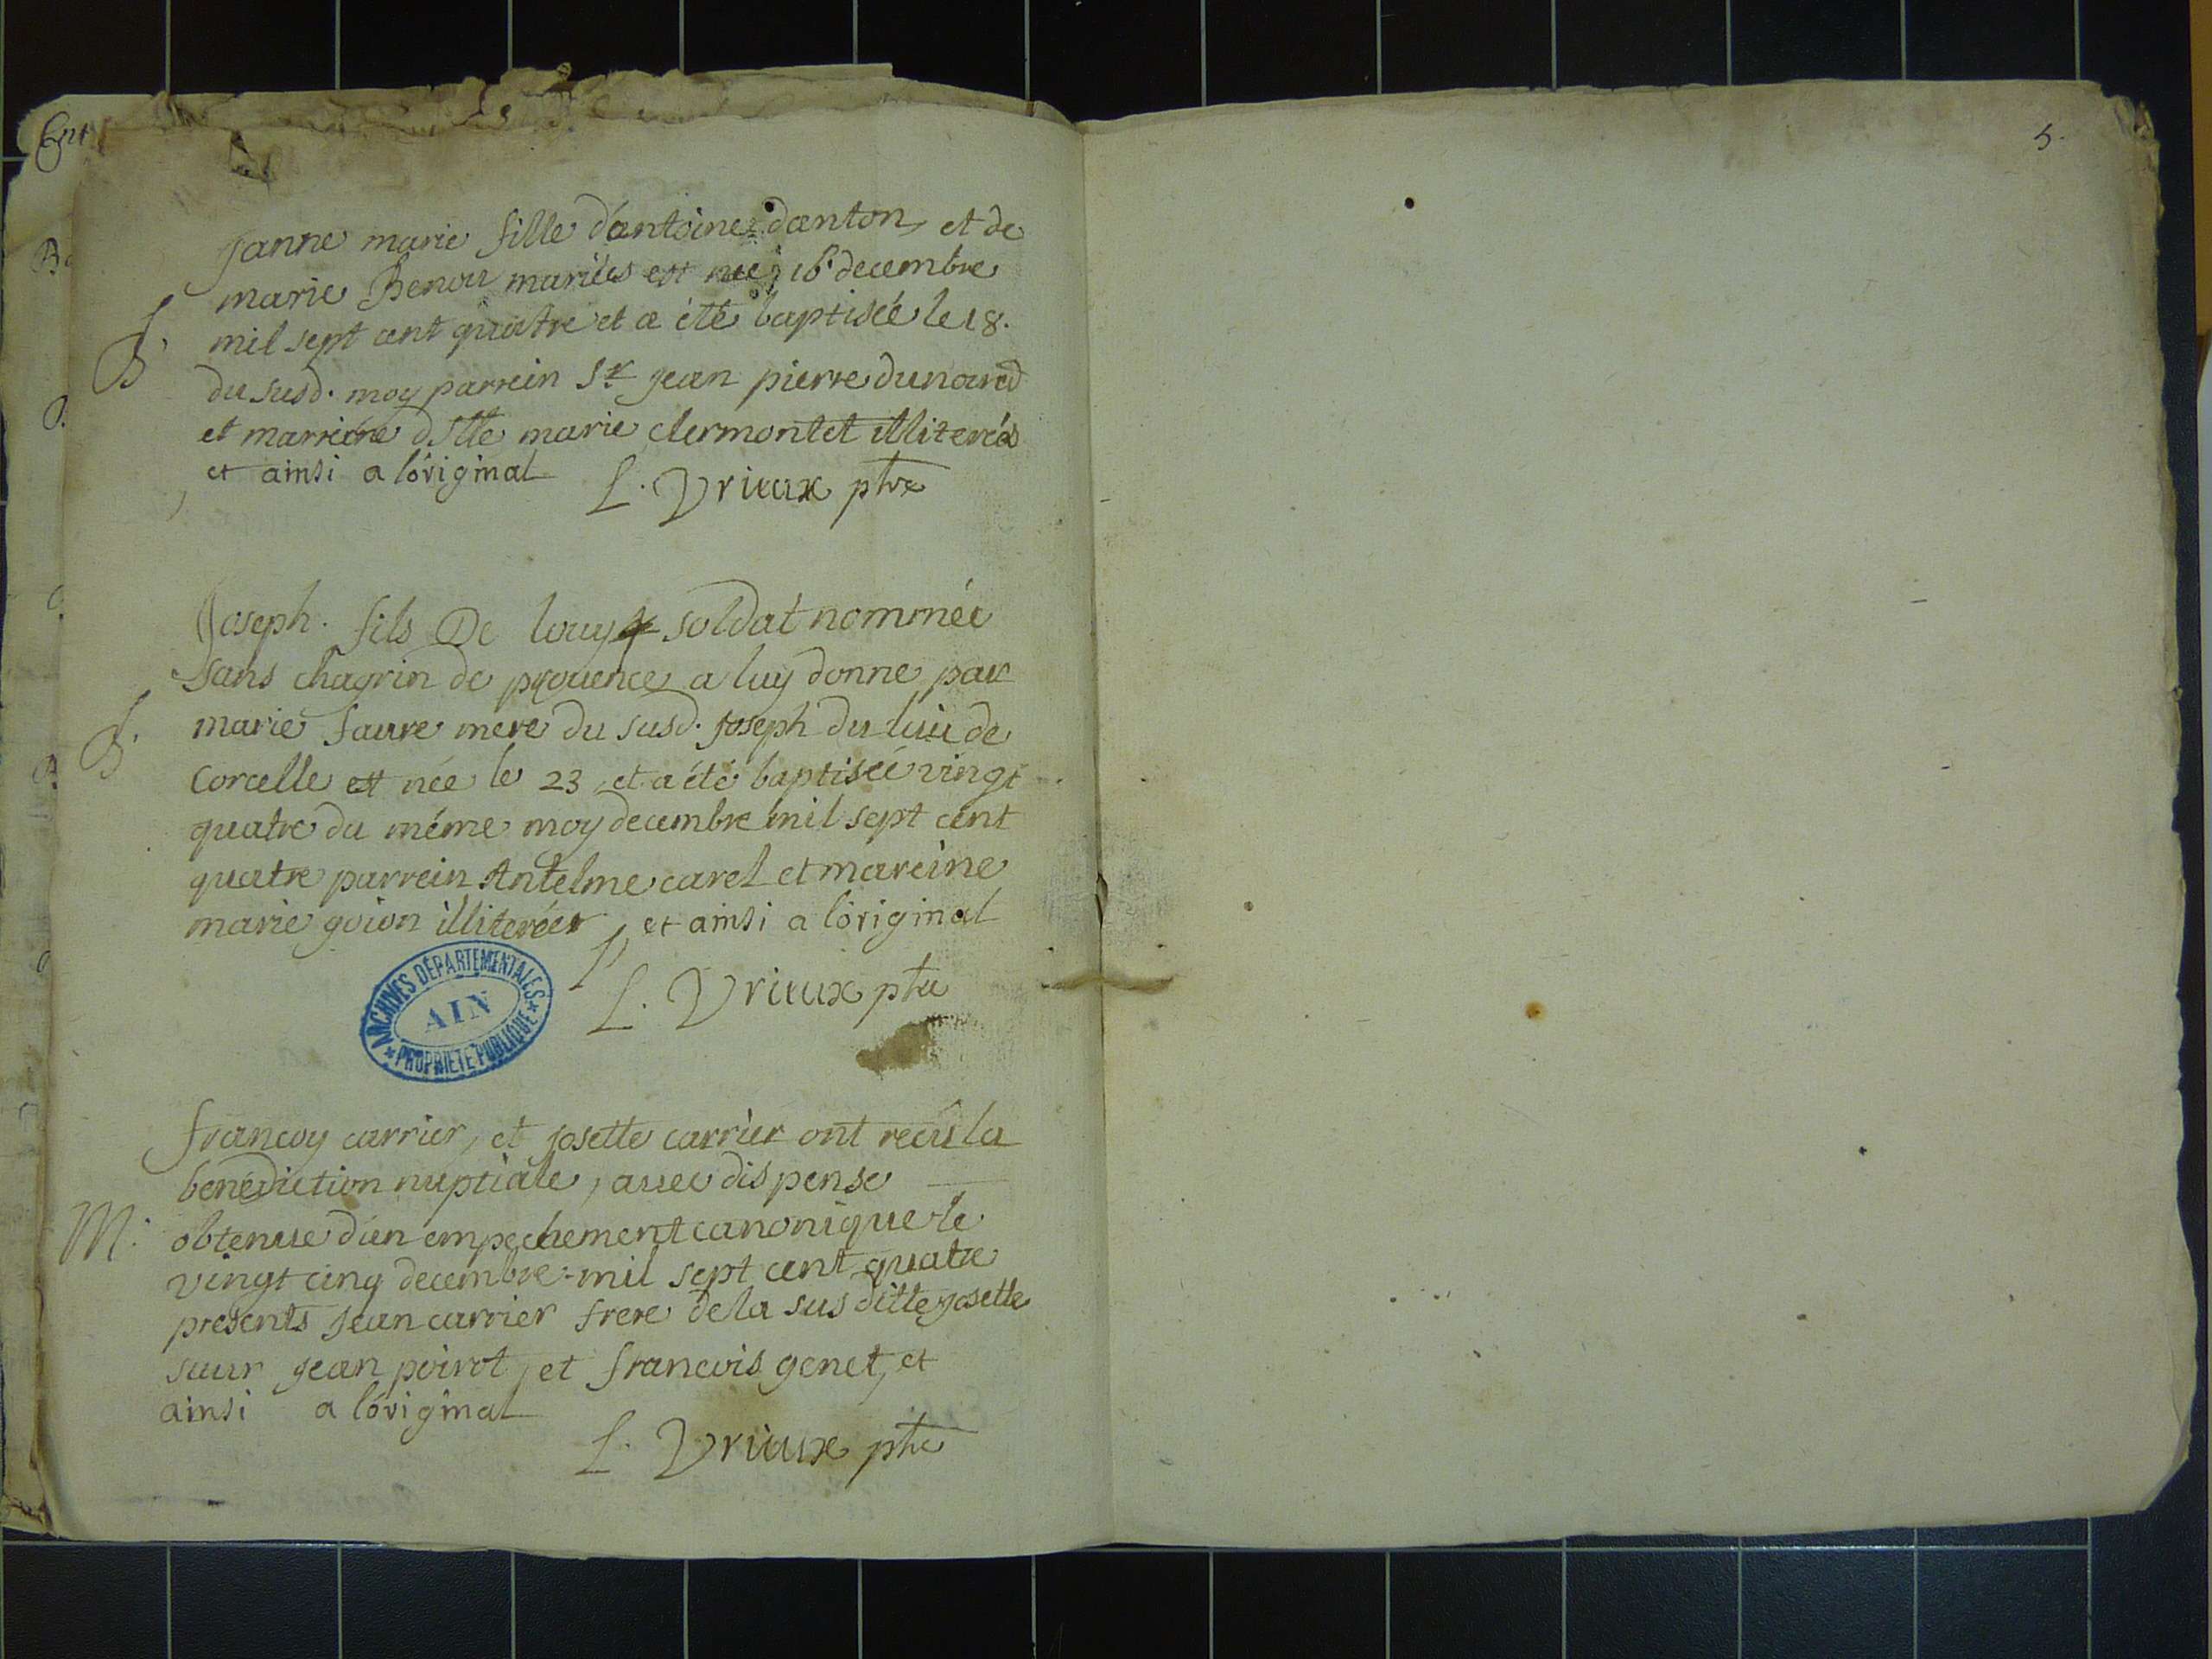 Ent
Janne marie fille d'antoine danton et de
marie Benoit mariés est née 16 decembre
B. mil sept cent quatre et a été baptisée le 18.
du susd. moy parrein Sr jean pierre dunoird
et marreine dlle marie clermontet illiterés
et ainsi a l'original L. Vrieux ptre
Joseph fils De louy soldat nommée
sans chagrin de prouence a luy donne par
B. marie faure mere du susd. joseph du luii de
Corcelle est née le 23 et a été baptisée vingt
quatre du méme moy decembre mil sept cent
quatre parrein Antelme carel et mareine
marie goion illiterées et ainsi a l'original
L. Vrieux ptre
ARCHIVES DÉPARTEMENTALES
AIN
PROPRIETE PUBLIQUE
francoy carrier, et josette carrier ont recû la
benédiction nuptiale, auec dispense
M. obtenue d'un empechement canonique le
vingt cinq decembre mil sept cent quatre
presents jean carrier frere de la sus ditte josette
sieur jean poirot, et francois genet, et
ainsi a l'original
L. Vrieux ptre
5.